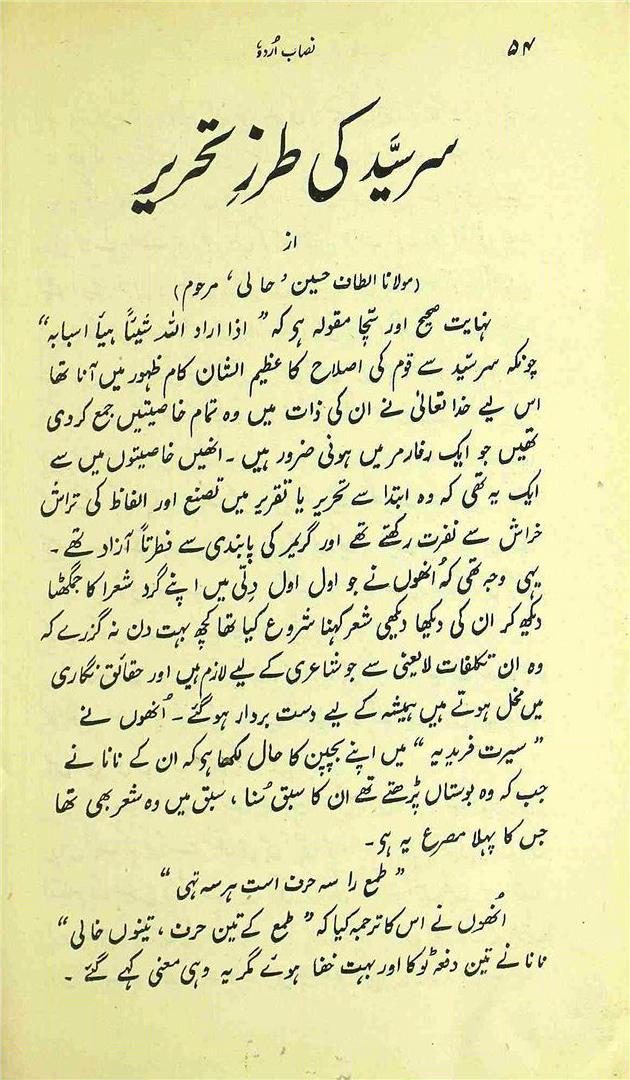 ۵۴ نصاب اُردو
سرسیّد کی طرزِ تحریر
از
(مولانا الطاف حسین ’حالی‘ مرحوم)
نہایت صحیح اور سچّا مقولہ ہی کہ ”اذا اراد اللہ شیئاً ہیأ اسبابہ“
چونکہ سرسیّد سے قوم کی اصلاح کا عظیم الشان کام ظہور میں آنا تھا
اس لیے خدا تعالیٰ نے ان کی ذات میں وہ تمام خاصیتیں جمع کردی
تھیں جو ایک رفارمر میں ہونی ضرور ہیں ۔ انھیں خاصیتوں میں سے
ایک یہ تھی کہ وہ ابتدا سے تحریر یا تقریر میں تصنع اور الفاظ کی تراش
خراش سے نفرت رکھتے تھے اور گریمر کی پابندی سے فطرتاً آزاد تھے ۔
یہی وجہ تھی کہ اُنھوں نے جو اول اول دِلّی میں اپنے گرد شعرا کا جمگھٹا
دیکھ کر ان کی دیکھا دیکھی شعر کہنا شروع کیا تھا کچھ بہت دن نہ گزرے کہ
وہ ان تکلفات لایعنی سے جو شاعری کے لیے لازم ہیں اور حقائق نگاری
میں مخل ہوتے ہیں ہمیشہ کے لیے دست بردار ہوگئے ۔ اُنھوں نے
”سیرت فریدیہ“ میں اپنے بچپن کا حال لکھا ہی کہ ان کے نانا نے
جب کہ وہ بوستاں پڑھتے تھے ان کا سبق سُنا ، سبق میں وہ شعر بھی تھا
جس کا پہلا مصرع یہ ہی ۔
”طمع را سہ حرف است ہر سہ تہی“
اُنھوں نے اس کا ترجمہ کیا کہ ”طمع کے تین حرف ، تینوں خالی“
نانا نے تین دفعہ ٹوکا اور بہت خفا ہوئے مگر یہ وہی معنی کہے گئے ۔